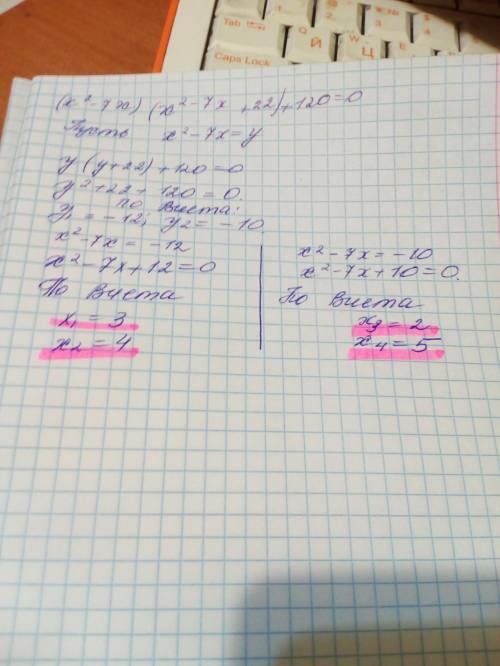 Tab
Caps Lock
Й
Ц
(x² - 7x) (x² - 7x + 22) + 120 = 0
Пусть x² - 7x = y
y (y + 22) + 120 = 0
y² + 22 + 120 = 0.
по Виета:
y₁ = -12; y₂ = -10
x² - 7x = -12
x² - 7x + 12 = 0
По Виета
x₁ = 3
x₂ = 4
x² - 7x = -10
x² - 7x + 10 = 0.
По Виета
x₃ = 2
x₄ = 5